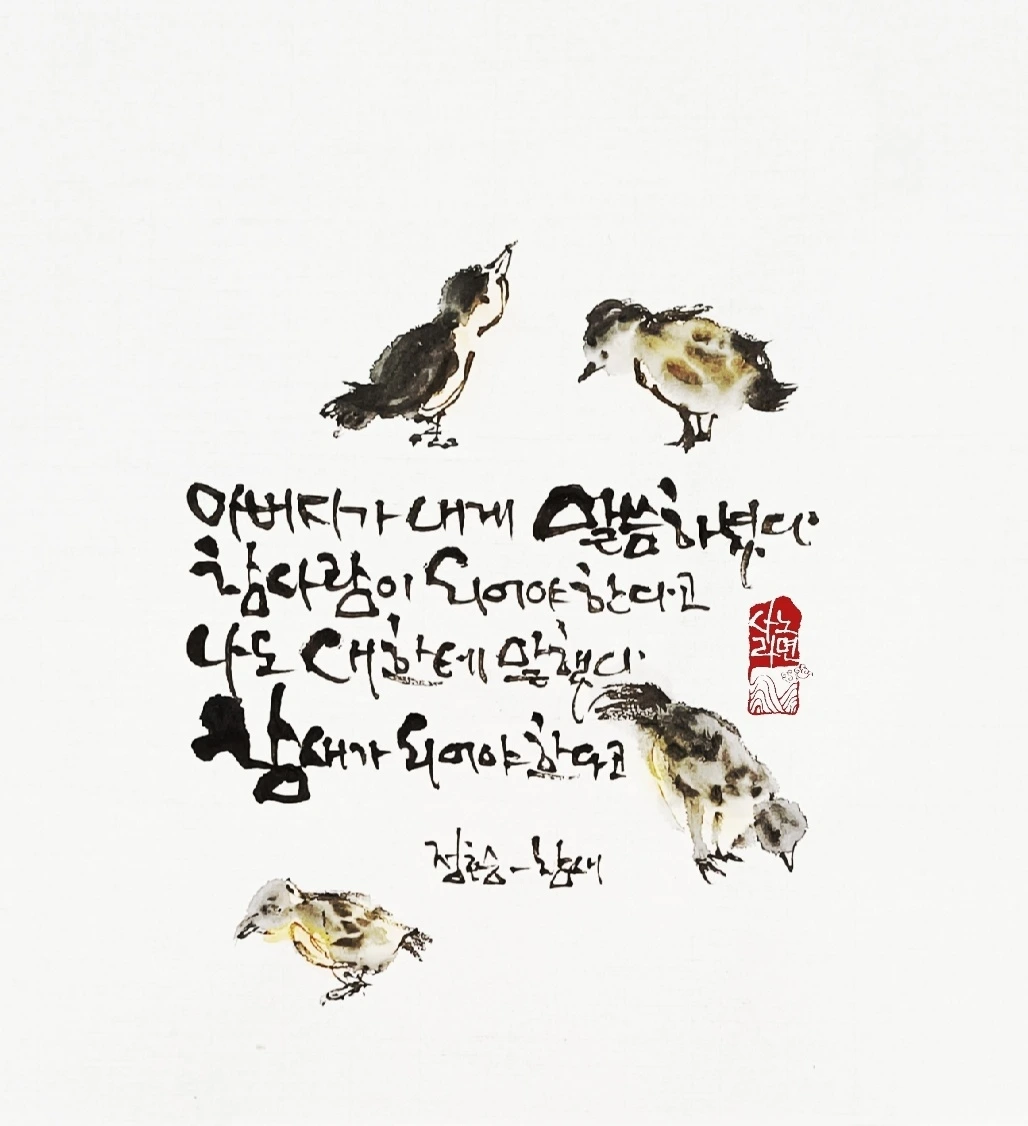 아버지가 내게 말씀하셨다
참사람이 되어야 한다고
나도 새한테 말했다
참새가 되어야 한다고
정호승 - 참새